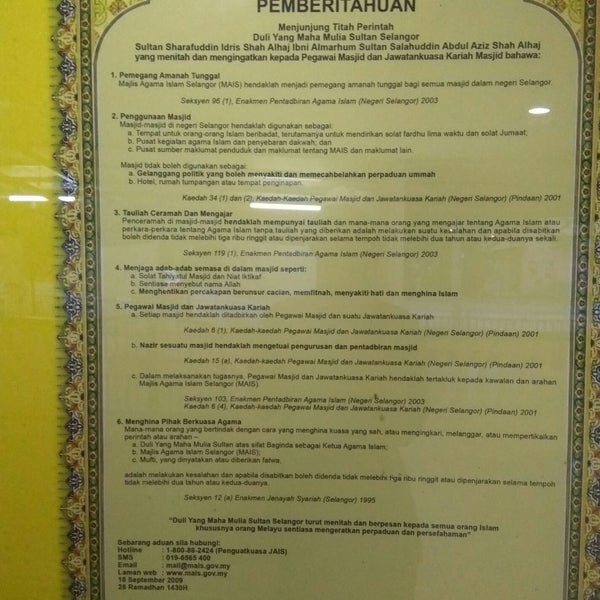 PEMBERITAHUAN
Menjunjung Titah Perintah
Duli Yang Maha Mulia Sultan Selangor
Sultan Sharafuddin Idris Shah Alhaj Ibni Almarhum Sultan Salahuddin Abdul Aziz Shah Alhaj
yang menitah dan mengingatkan kepada Pegawai Masjid dan Jawatankuasa Kariah Masjid bahawa:
1. Pemegang Amanah Tunggal
Majlis Agama Islam Selangor (MAIS) hendaklah menjadi pemegang amanah tunggal bagi semua masjid dalam negeri Selangor.
Seksyen 96 (1), Enakmen Pentadbiran Agama Islam (Negeri Selangor) 2003
2. Penggunaan Masjid
Masjid-masjid di negeri Selangor hendaklah digunakan sebagai:
a. Tempat untuk orang-orang Islam beribadat, terutamanya untuk mendirikan solat fardhu lima waktu dan solat Jumaat;
b. Pusat kegiatan agama Islam dan penyebaran dakwah; dan
c. Pusat sumber maklumat penduduk dan maklumat tentang MAIS dan maklumat lain.
Masjid tidak boleh digunakan sebagai:
a. Gelanggang politik yang boleh menyakiti dan memecahbelahkan perpaduan ummah
b. Hotel, rumah tumpangan atau tempat penginapan.
Kaedah 34 (1) dan (2), Kaedah-Kaedah Pegawai Masjid dan Jawatankuasa Kariah (Negeri Selangor) (Pindaan) 2001
3. Tauliah Ceramah Dan Mengajar
Penceramah di masjid-masjid hendaklah mempunyai tauliah dan mana-mana orang yang mengajar tentang Agama Islam atau
perkara-perkara tentang Agama Islam tanpa tauliah yang diberikan adalah melakukan suatu kesalahan dan apabila disabitkan
boleh didenda tidak melebihi tiga ribu ringgit atau dipenjarakan selama tempoh tidak melebihi dua tahun atau kedua-duanya sekali.
Seksyen 119 (1), Enakmen Pentadbiran Agama Islam (Negeri Selangor) 2003
4. Menjaga adab-adab semasa di dalam masjid seperti:
a. Solat Tahiyatul Masjid dan Niat Iktikaf
b. Sentiasa menyebut nama Allah
c. Menghentikan percakapan berunsur cacian, memfitnah, menyakiti hati dan menghina Islam
5. Pegawai Masjid dan Jawatankuasa Kariah
a. Setiap masjid hendaklah ditadbirkan oleh Pegawai Masjid dan suatu Jawatankuasa Kariah
Kaedah 6 (1), Kaedah-kaedah Pegawai Masjid dan Jawatankuasa Kariah (Negeri Selangor) (Pindaan) 2001
b. Nazir sesuatu masjid hendaklah mengetuai pengurusan dan pentadbiran masjid
Kaedah 15 (a), Kaedah-kaedah Pegawai Masjid dan Jawatankuasa Kariah (Negeri Selangor) (Pindaan) 2001
c. Dalam melaksanakan tugasnya, Pegawai Masjid dan Jawatankuasa Kariah hendaklah tertakluk kepada kawalan dan arahan
Majlis Agama Islam Selangor (MAIS).
Seksyen 103, Enakmen Pentadbiran Agama Islam (Negeri Selangor) 2003
Kaedah 6 (4), Kaedah-kaedah Pegawai Masjid dan Jawatankuasa Kariah (Negeri Selangor) (Pindaan) 2001
6. Menghina Pihak Berkuasa Agama
Mana-mana orang yang bertindak dengan cara yang menghina kuasa yang sah, atau mengingkari, melanggar, atau mempertikaikan
perintah atau arahan –
a. Duli Yang Maha Mulia Sultan atas sifat Baginda sebagai Ketua Agama Islam;
b. Majlis Agama Islam Selangor (MAIS);
c. Mufti, yang dinyatakan atau diberikan fatwa,
adalah melakukan kesalahan dan apabila disabitkan boleh didenda tidak melebihi tiga ribu ringgit atau dipenjarakan selama tempoh
tidak melebihi dua tahun atau kedua-duanya.
Seksyen 12 (a) Enakmen Jenayah Syariah (Selangor) 1995
"Duli Yang Maha Mulia Sultan Selangor turut menitah dan berpesan kepada semua orang Islam
khususnya orang Melayu sentiasa mengeratkan perpaduan dan persefahaman"
Sebarang aduan sila hubungi:
Hotline : 1-800-88-2424 (Penguatkuasa JAIS)
SMS : 019-6565 400
Email : mail@mais.gov.my
Laman web : www.mais.gov.my
18 September 2009
28 Ramadhan 1430H